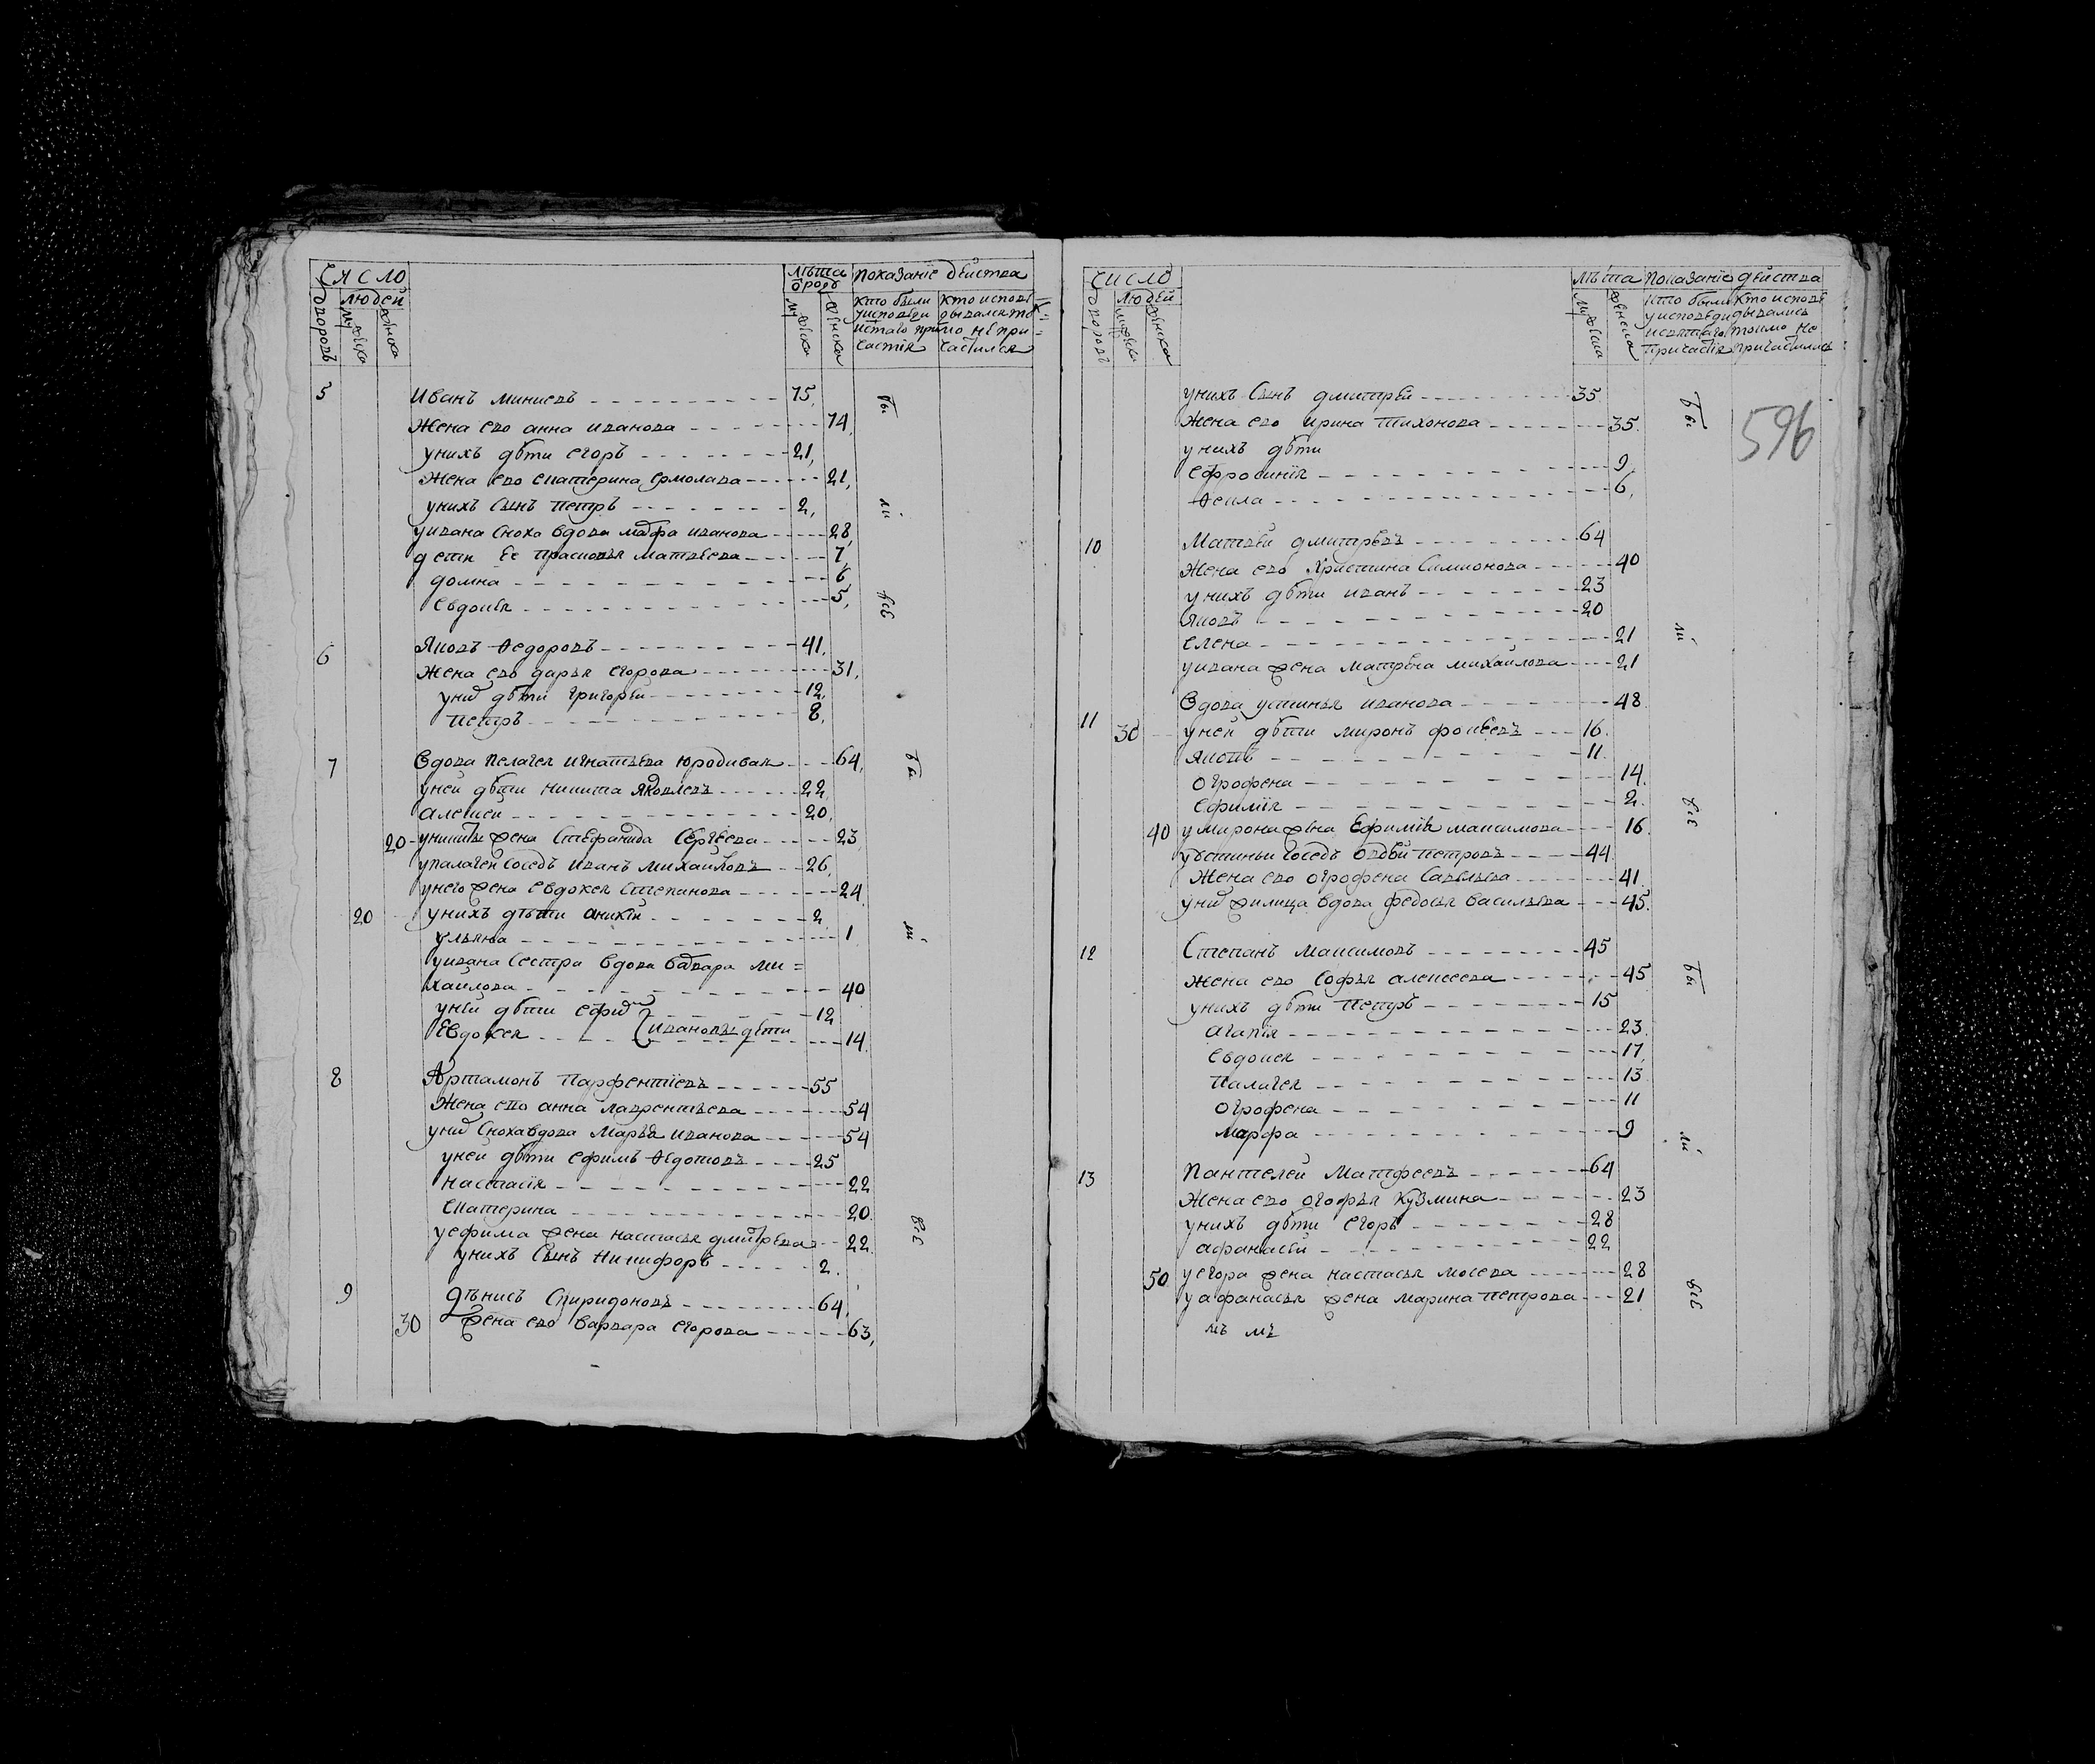 Число
Лѣта
от родъ
Показание действа
дворовъ
людей
мужска
женска
мужска
женска
кто были
у исповеди
и с̃таго при-
частия
кто исповѣ
дывался то
мо не при=
частился
5 Иванъ Миниевъ 75
Жена ево анна иванова 74
у нихъ дѣти егоръ 21
Жена ево екатерина ермолава 21
у нихъ сынъ петръ 2
у ивана сноха вдова мавфа иванова 28
дети Ее прасковья матвѣева 7
домна 6
Евдокѣя 5
6 Яковъ Ѳедоровъ 41
Жена ево дарья егорова 31
у них дѣти григорѣй 12
петръ 8
7 Вдова пелагея игнатьева юродивая 64
у ней дѣти никита Яковлевъ 22
алексѣй 20
20 у никиты жена Стефанида Сергѣева 23
у палагеи соседъ иванъ михайловъ 26
у него жена евдокея Степанова 24
20 у нихъ дѣти аникѣй 2
ульяна 1
у ивана сестра вдова вавара ми=
хайлова 40
у ней дѣти ефим 12
Евдокея ивановы дѣти 14
8 Артамонъ Парфентїевъ 55
Жена ево анна лаврентьева 54
у них сноха вдова Марья иванова 54
у ней дѣти ефимъ Ѳедотовъ 25
настасїя 22
екатерина 20
у ефима жена настасья дмитрѣва 22
у нихъ сынъ Никифоръ 2
9 Дѣнисъ Спиридоновъ 64
30 жена ево варвара егорова 63
Число
Лѣта
Показанїе действа
дворовъ
людей
мужска
женска
мужска
женска
кто были
у исповеди
и святаго
причастїя
кто исповѣ
дывались
токмо не
причастились
596
у нихъ сынъ дмитрѣй 35
Жена ево ирина тихонова 35
у нихъ дѣти
ефросинїя 9
Ѳекла 6
10 Матвѣй дмитрѣвъ 64
Жена ево христина Симионова 40
у нихъ дѣти иванъ 23
Яковъ 20
елена 21
у ивана жена матрена михайлова 21
11 Вдова устинья иванова 48
30 у ней дѣти миронъ фокѣевъ 16
Яковъ 11
огрофена 14
ефимїя 2
40 у мирона жена Ефимїя максимова 16
у устиньи соседъ овдѣй петровъ 44
Жена ево огрофена Савельева 41
у них жилица вдова федосья васильева 45
12 Степанъ Максимовъ 45
Жена ево софья алексеева 45
у нихъ дѣти петръ 15
агапїя 23
евдокея 17
палагея 13
огрофена 11
марфа 9
13 Пантелей Матфеевъ 64
Жена ево огофья кузмина 23
у нихъ дѣти егоръ 28
афанасѣй 22
50 у егора жена настасья мосева 28
у афанасья жена марина петрова 21
бы
ли
всѣ
бы
ли
всѣ
бы
ли
всѣ
бы
ли
всѣ